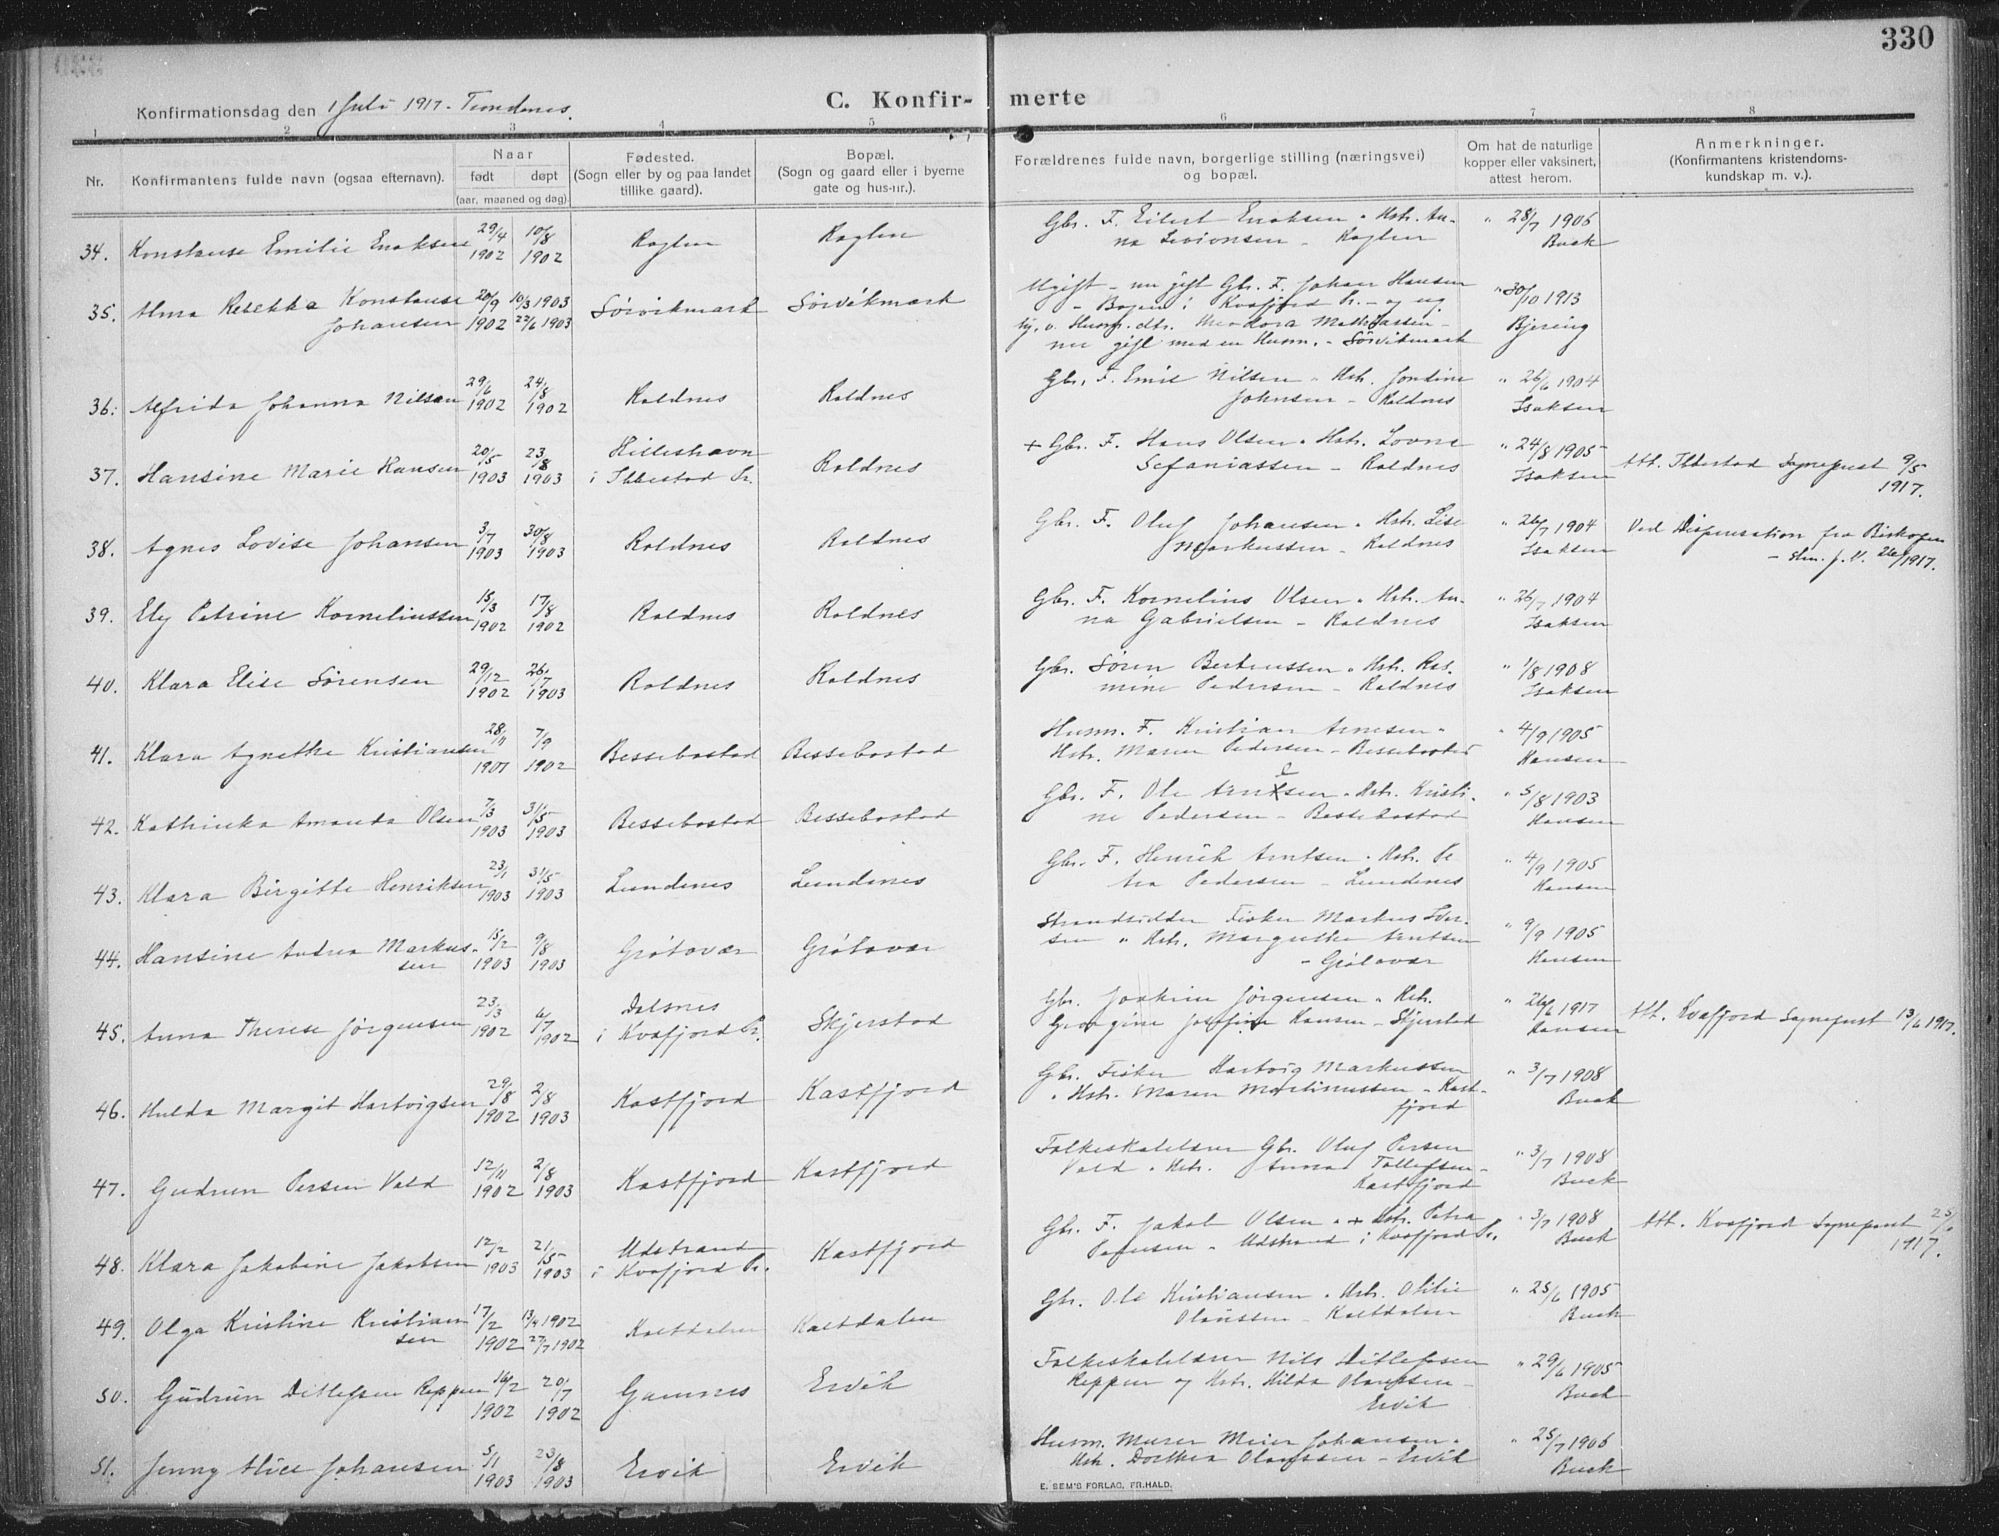 330
Konfirmationsdag den 1 Juli 1917. Trondenes.
C. Konfir- merte
1 2 3 4 5 6 7 8
Nr.
Konfirmantens fulde navn (ogsaa efternavn).
Naar
født døpt
(aar, maaned og dag)
Fødested.
(Sogn eller by og paa landet
tillike gaard).
Bopæl.
(Sogn og gaard eller i byerne
gate og hus-nr.).
Forældrenes fulde navn, borgerlige stilling (næringsvei)
og bopæl.
Om hat de naturlige
kopper eller vaksinert,
attest herom.
Anmerkninger.
(Konfirmantens kristendoms-
kundskap m. v.).
34. Konstanse Emilie Enoksen 29/4 1902 10/8 1902 Roglen Roglen Gbr. F. Eilert Enoksen Hstr. An-
na Levionsen - Roglen " 28/7 1906 Buck
35. Alma Rebekka Konstanse
Johansen 20/9 1902 10/3 1903 22/6 1903 Sörvikmark Sörvikmark Ugift - nu gift Gbr. F. Johan Hansen
- Bogen i Kvæfjord Pr. - og ug.
Husm. dtr. Theodora Mathiassen -
nu gift med en Husm. - Sörvikmark " 30/10 1913 Bjering
36. Alfrida Johanna Nilsen 29/6 1902 24/8 1902 Roldnes Roldnes Gbr. F. Emil Nilsen Hstr. Jondine
Johnsen - Roldnes " 26/6 1904 Isaksen
37. Hansine Marie Hansen 20/5 1903 23/8 1903 Hilleshavn
i Ibbestad Pr. Roldnes + Gbr. F. Hans Olsen Hstr. Lovne
Sefaniassen - Roldnes " 24/8 1905 Isaksen Att. Ibbestad Sognepræst 9/5
1917.
38. Agnes Lovise Johansen 3/7 1903 30/8 1903 Roldnes Roldnes Gbr. F. Oluf Johansen Hstr. Lise
Markussen - Roldnes " 26/7 1904 Isaksen Ved Dispensation fra Biskopen
1917.
39. Ely Petrine Korneliussen 15/3 1902 17/8 1902 Roldnes Roldnes Gbr. F. Kornelius Olsen Hstr. An-
na Gabrielsen - Roldnes " 26/7 1904 Isaksen
40. Klara Elise Sörensen 29/12 1902 26/7 1903 Roldnes Roldnes Gbr. Sören Berteussen Hstr. Ras-
mine Pedersen - Roldnes " 1/8 1908 Isaksen
41. Klara Agnethe Kristiansen 28/11 1901 7/9 1902 Bessebostad Bessebostad Husm. F. Kristian Arnesen
Hstr. Maren Pedersen - Bessebostad " 4/9 1905 Hansen
42. Kathinka Amanda Olsen 7/3 1903 31/5 1903 Bessebostad Bessebostad Gbr. F. Ole Arnesen Hstr. Kristi-
ne Pedersen - Bessebostad " 5/8 1903 Hansen
43. Klara Birgitte Henriksen 23/1 1903 31/5 1903 Lundenes Lundenes Gbr. F. Henrik Arntsen Hstr. Pe
tra Pedersen - Lundenes " 4/9 1905 Hansen
44. Hansine Andrea Markus-
sen 15/2 1903 9/8 1903 Grötavær Grötavær Strandsidder Fisker Markus Iver-
sen " Hstr. Margrethe Arntsen
- Grötavær " 9/9 1905 Hansen
45. Anna Therese Jörgensen 23/3 1902 6/7 1902 Dalsnes
i Kvæfjord Pr. Skjerstad Gbr. Joakim Jörgensen Hstr.
Georgine Josefine Hansen - Skjerstad " 26/6 1917 Hansen Att. Kvæfjord Sognepræst 13/6 1917.
46. Hulda Margit Hartvigsen 29/8 1902 2/8 1903 Kastfjord Kastfjord Gbr. Fisker Hartvig Markussen
Hstr. Maren Martinussen - Kast-
fjord " 3/7 1908 Buck
47. Gudrun Persen Vold 12/11 1902 2/8 1903 Kastfjord Kastfjord Folkeskolelærer Gbr. Oluf Persen
Vold Hstr. Anna Tollefsen -
Kastfjord " 3/7 1908 Buck
48. Klara Jakobine Jakobsen 12/2 1903 21/5 1903 Udstrand
i Kvæfjord Pr. Kastfjord Gbr. F. Jakob Olsen + Hstr. Petra
Pedersen - Udstrand i Kvæfjord Pr. " 3/7 1908 Buck Att. Kvæfjord Sognepræst 25/6
1917.
49. Olga Kristine Kristian
sen 17/2 1902 13/4 1902 27/7 1902 Kaltdalen Kaltdalen Gbr. Ole Kristiansen Hstr. Otilie
Olaussen - Kaltdalen " 25/6 1905 Buck
50. Gudrun Ditlefsen Reppen 16/2 1902 20/7 1902 Gamnes Ervik Folkeskolelærer Nils Ditlefsen
Reppen og Hstr. Hilda Olaussen -
Ervik " 29/6 1905 Buck
51. Jenny Alice Johansen 5/1 1903 23/8 1903 Ervik Ervik Husm. Murer Meier Johansen
Hstr. Dorthea Olaussen - Ervik " 25/7 1906 Buck
E. SEM'S FORLAG, FR.HALD.